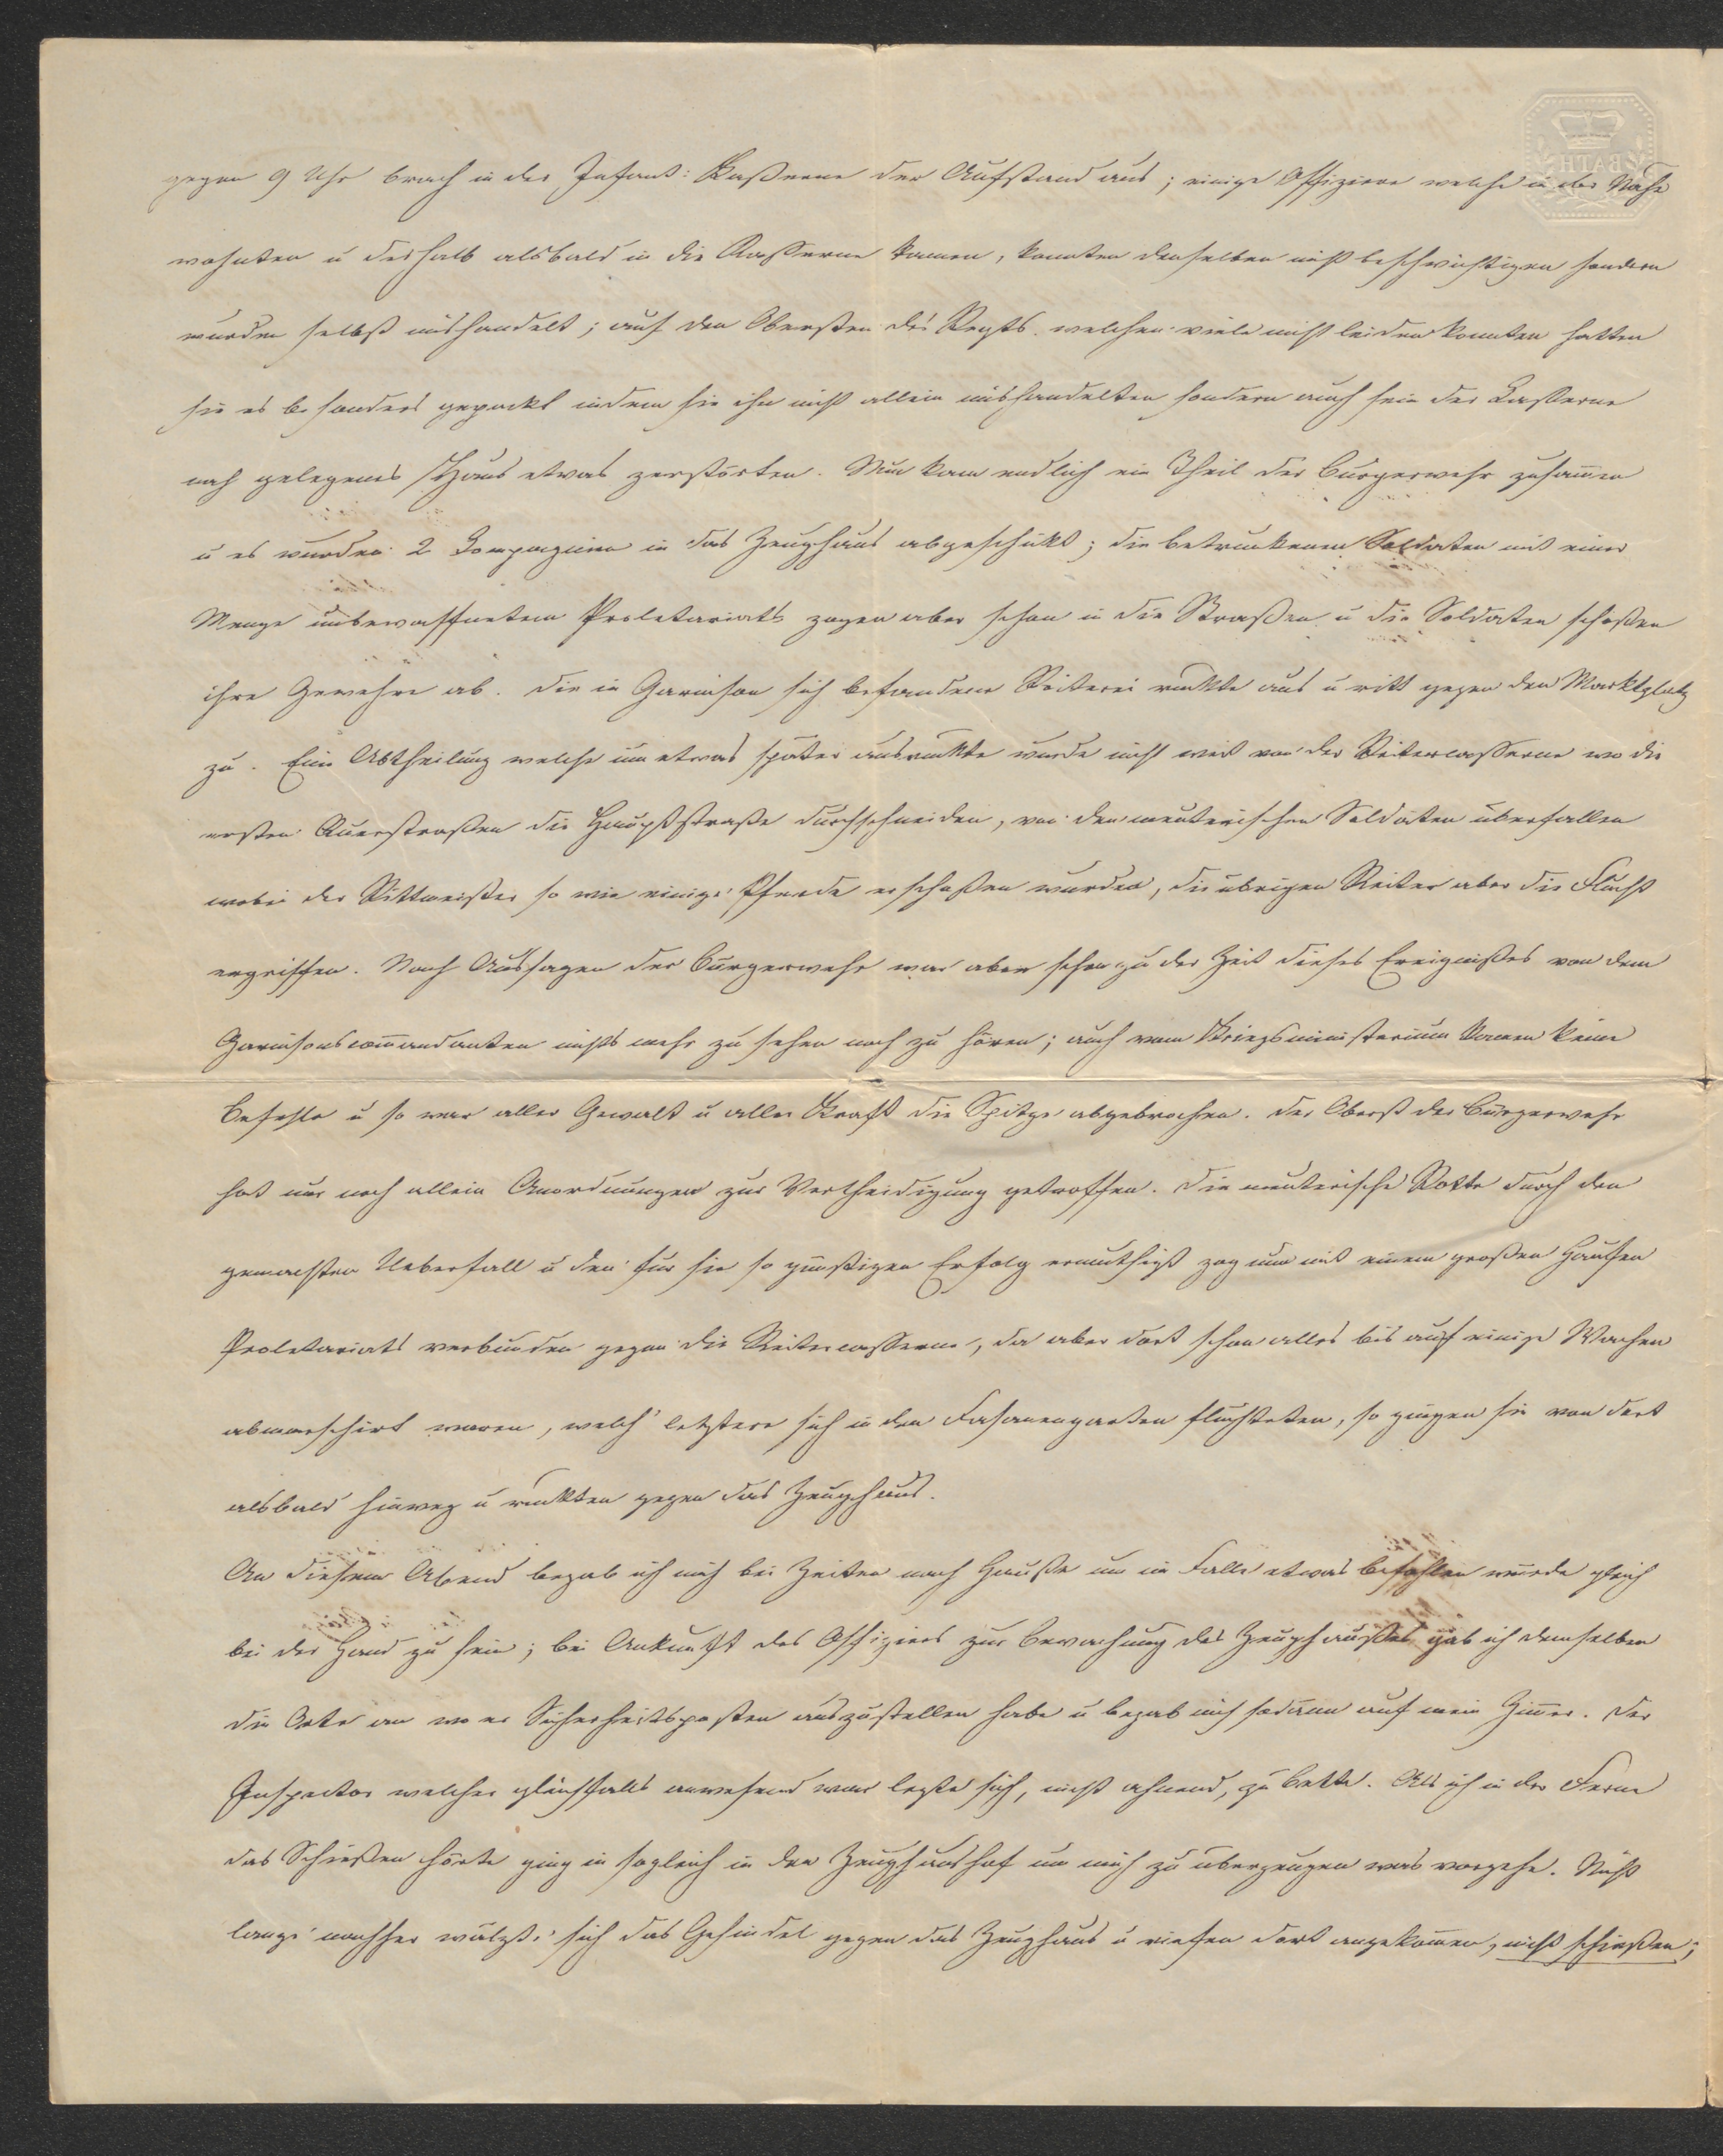 BATH
gegen 9 Uhr brach in der Infant: Kaßerne der Aufstand aus; einige Offiziere welche in der Nähe
wohnten u deshalb alsbald in die Kasserne kamen, konnten denselben nicht beschwichtigen sondern
wurden selbst mishandelt; auf den Obersten des Regts. welchen viele nicht leiden konnten hatten
sie es besonders gepackt indem sie ihn nicht allein mishandelten sondern auch sein der Casserne
nah gelegenes Haus etwas zerstörten. Nun kam endlich ein Theil der Bürgerwehr zusam̅en
u es wurden 2 Compagnien in das Zeughaus abgeschükt; die betrunkenen Soldaten mit einer
Menge unbewaffnetem Proletariats zogen aber schon in die Straßen u die Soldaten schoßen
ihre Gewehre ab. Die in Garnison sich befandene Reiterei rückte aus u ritt gegen den Marktplatz
zu. Eine Abtheilung welche um etwas später ausrückte wurde nicht weit von der Reitercasserne wo die
ersten Querstraßen die Hauptstraße durchschneiden, von den meuterischen Soldaten überfallen
wobei der Rittmeister so wie einige Pferde erschoßen wurden, die übrigen Reiter aber die Flucht
ergriffen. Nach Aussagen der Bürgerwehr war aber schon zu der Zeit dieses Ereignißes von dem
Garnisonscom̅andanten nichts mehr zu sehen noch zu hören; auch vom Kriegsministerium kamen keine
Befehle u so war aller Gewalt u aller Kraft die Spitze abgebrochen. Der Oberst der Bürgerwehr
hat nur noch allein Anordnungen zur Vertheidigung getroffen. Die meuterische Rotte durch den
gemachten Ueberfall u den für sie so günstigen Erfolg ermuthigt zog nun mit einem großen Haufen
Proletariats verbunden gegen die Reitercasserne, da aber dort schon alles bis auf einige Wachen
abmarschirt waren, welch' letztere sich in den Fasanengarten flüchteten, so gingen sie von dort
alsbald hinweg u rückten gegen das Zeughaus.
An diesem Abend begab ich mich bei Zeiten nach Hauße um im Falle etwas befohlen würde gleich
bei der Hand zu sein; bei Ankunft des Offiziers zur Bewachung des Zeughaußes gab ich demselben
die Orte an wo er Sicherheitsposten auszustellen habe u begab mich sodann auf mein Zim̅er. Der
Inspector welcher gleichfalls anwesend war legte sich, nichts ahnend, zu Bette. Als ich in der Ferne
das Schießen hörte ging in sogleich in den Zeughaushof um mich zu überzeugen was vorgehe. Nicht
lange nachher wälzte sich das Gesindel gegen das Zeughaus u riefen dort angekom̅en, nicht schießen;